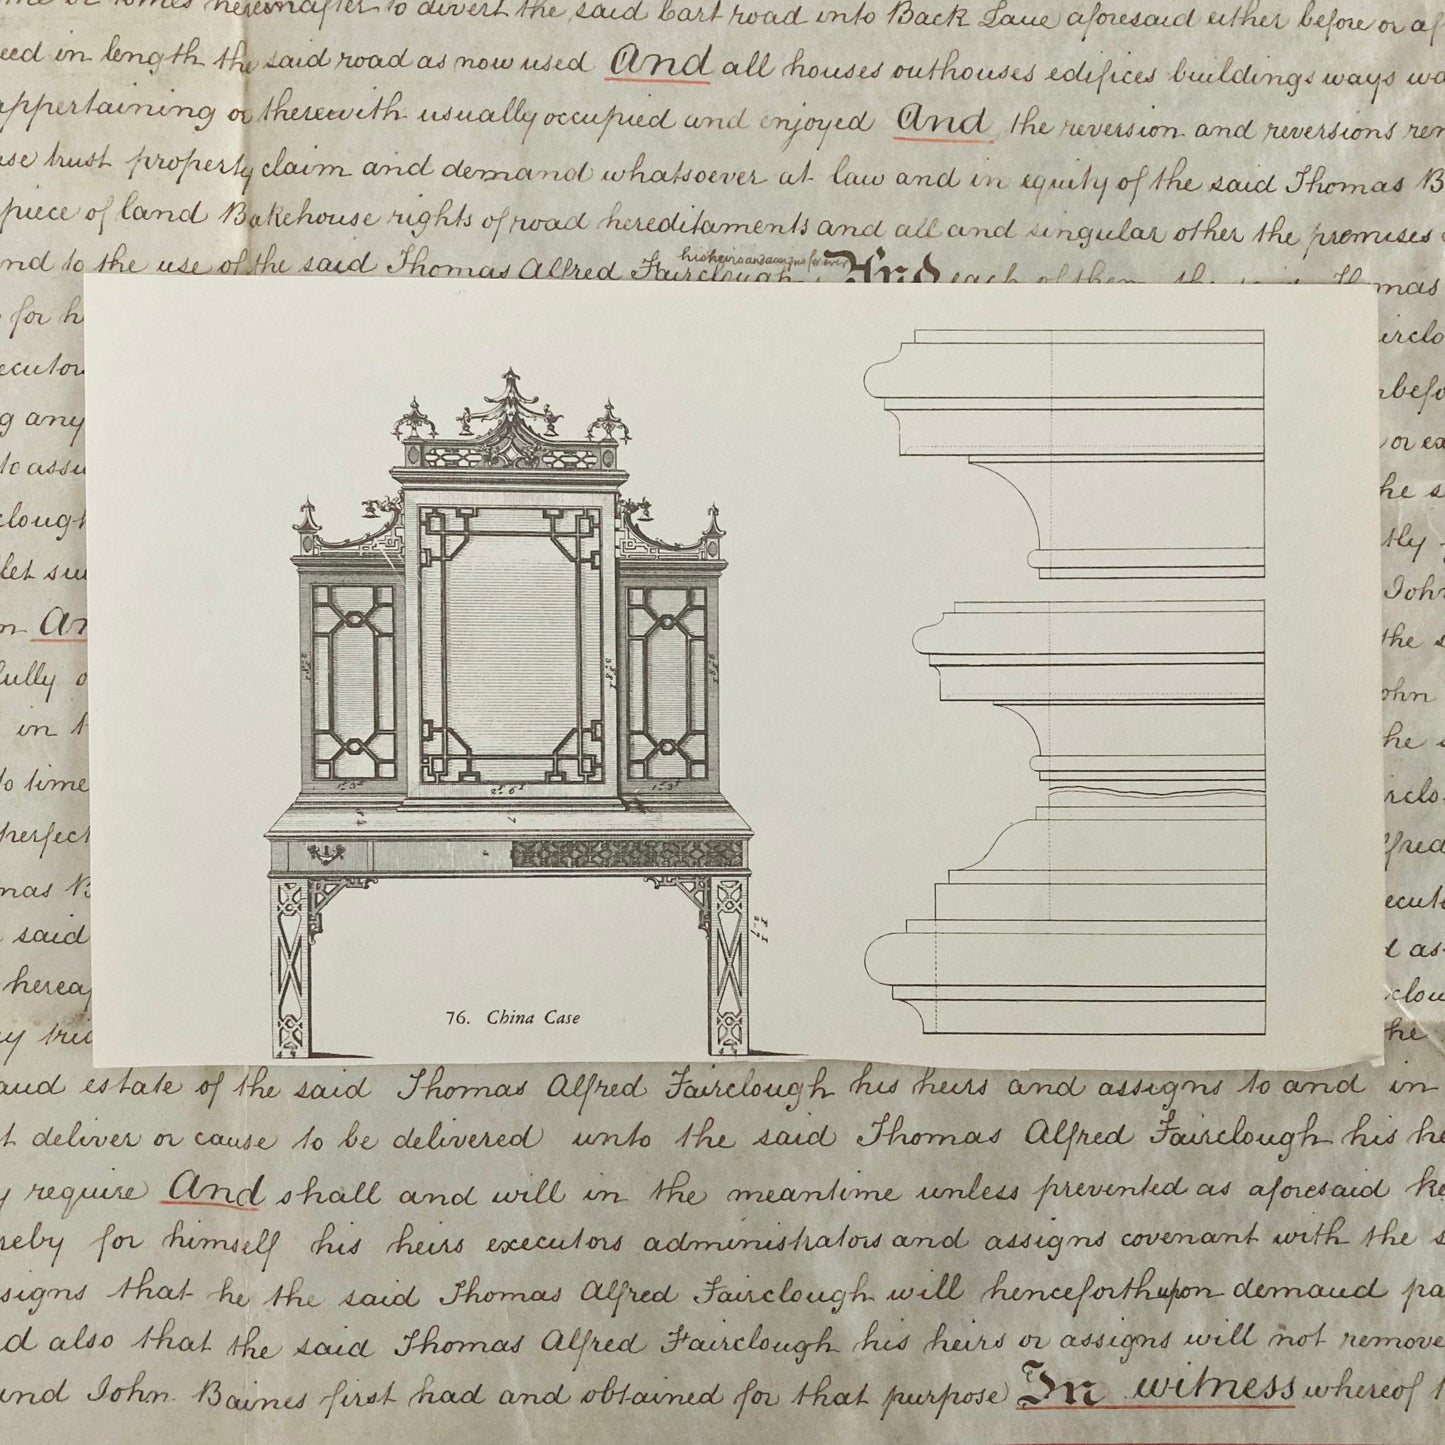 hereinafter to divert the said Cart road into Back Lane aforesaid either before or af
eed in length the said road as now used And all houses outhouses edifices buildings ways wa
appertaining or therewith usually occupied and enjoyed And the reversion and reversions rem
use trust property claim and demand whatsoever at law and in equity of the said Thomas B
piece of land Bakehouse rights of road hereditaments and all and singular other the premises
his heirs and assigns for ever
nd to the use of the said Thomas Alfred Fairclough And each of them the said Thomas
for h
irclo
ecutor
befo
g any
or ex
to assu
he s
clough
tly
let su
John
n An
the s
fully o
ohn
in t
he s
to time
irclo
perfect
lfred
mas B
ecuto
said
d as
herea
clou
he
76. China Case
1.3
2.6
1.3
aud estate of the said Thomas Alfred Fairclough his heirs and assigns to and in
t deliver or cause to be delivered unto the said Thomas Alfred Fairclough his he
y require And shall and will in the meantime unless prevented as aforesaid ke
reby for himself his heirs executors administrators and assigns covenant with the s
signs that he the said Thomas Alfred Fairclough will henceforth upon demaud pa
d also that the said Thomas Alfred Fairclough his heirs or assigns will not remove
and John Baines first had and obtained for that purpose In witness whereof t